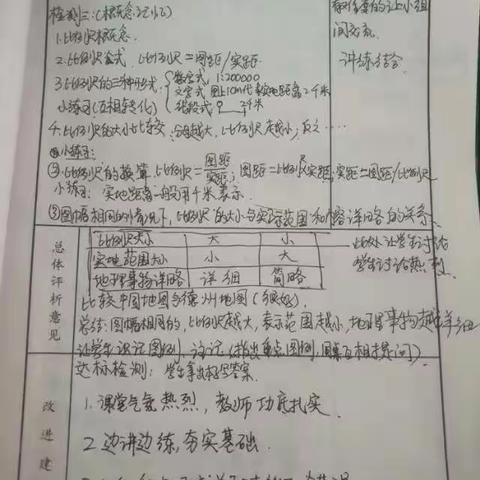 检测二:(概念,记忆)
1.比例尺概念.
2.比例尺公式. 比例尺=图距/实距
3.比例尺的三种形式 数字式, 1:200000
文字式 图上1cm代表实地距离2千米
小练习(互相转化) 线段式 0 2千米
4.比例尺的大小比较: 分母越大,比例尺越小,反之……
小练习:
⑤比例尺的换算, 比例尺=图距/实距; 图距=比例尺×实距; 实距=图距/比例尺
小练习: 实地距离一般用千米表示.
⑥图幅相同的情况下,比例尺的大小与实际范围和内容详略的关系.
让小组
间交流
讲练结合
总体评析意见
比例尺大小 大 小
实地范围大小 小 大
地理事物详略 详细 简略
此处让学生讨论
学生讨论热烈
比较中国地图与德州地图(很好).
总结:图幅相同的,比例尺越大,表示范围越小,地理事物越详细
让学生识记图例、注记(指出重点图例,同桌互相提问)
达标检测: 学生拿出标答案.
改进建
1.课堂气氛热烈,教师功底扎实.
2.边讲边练,夯实基础.